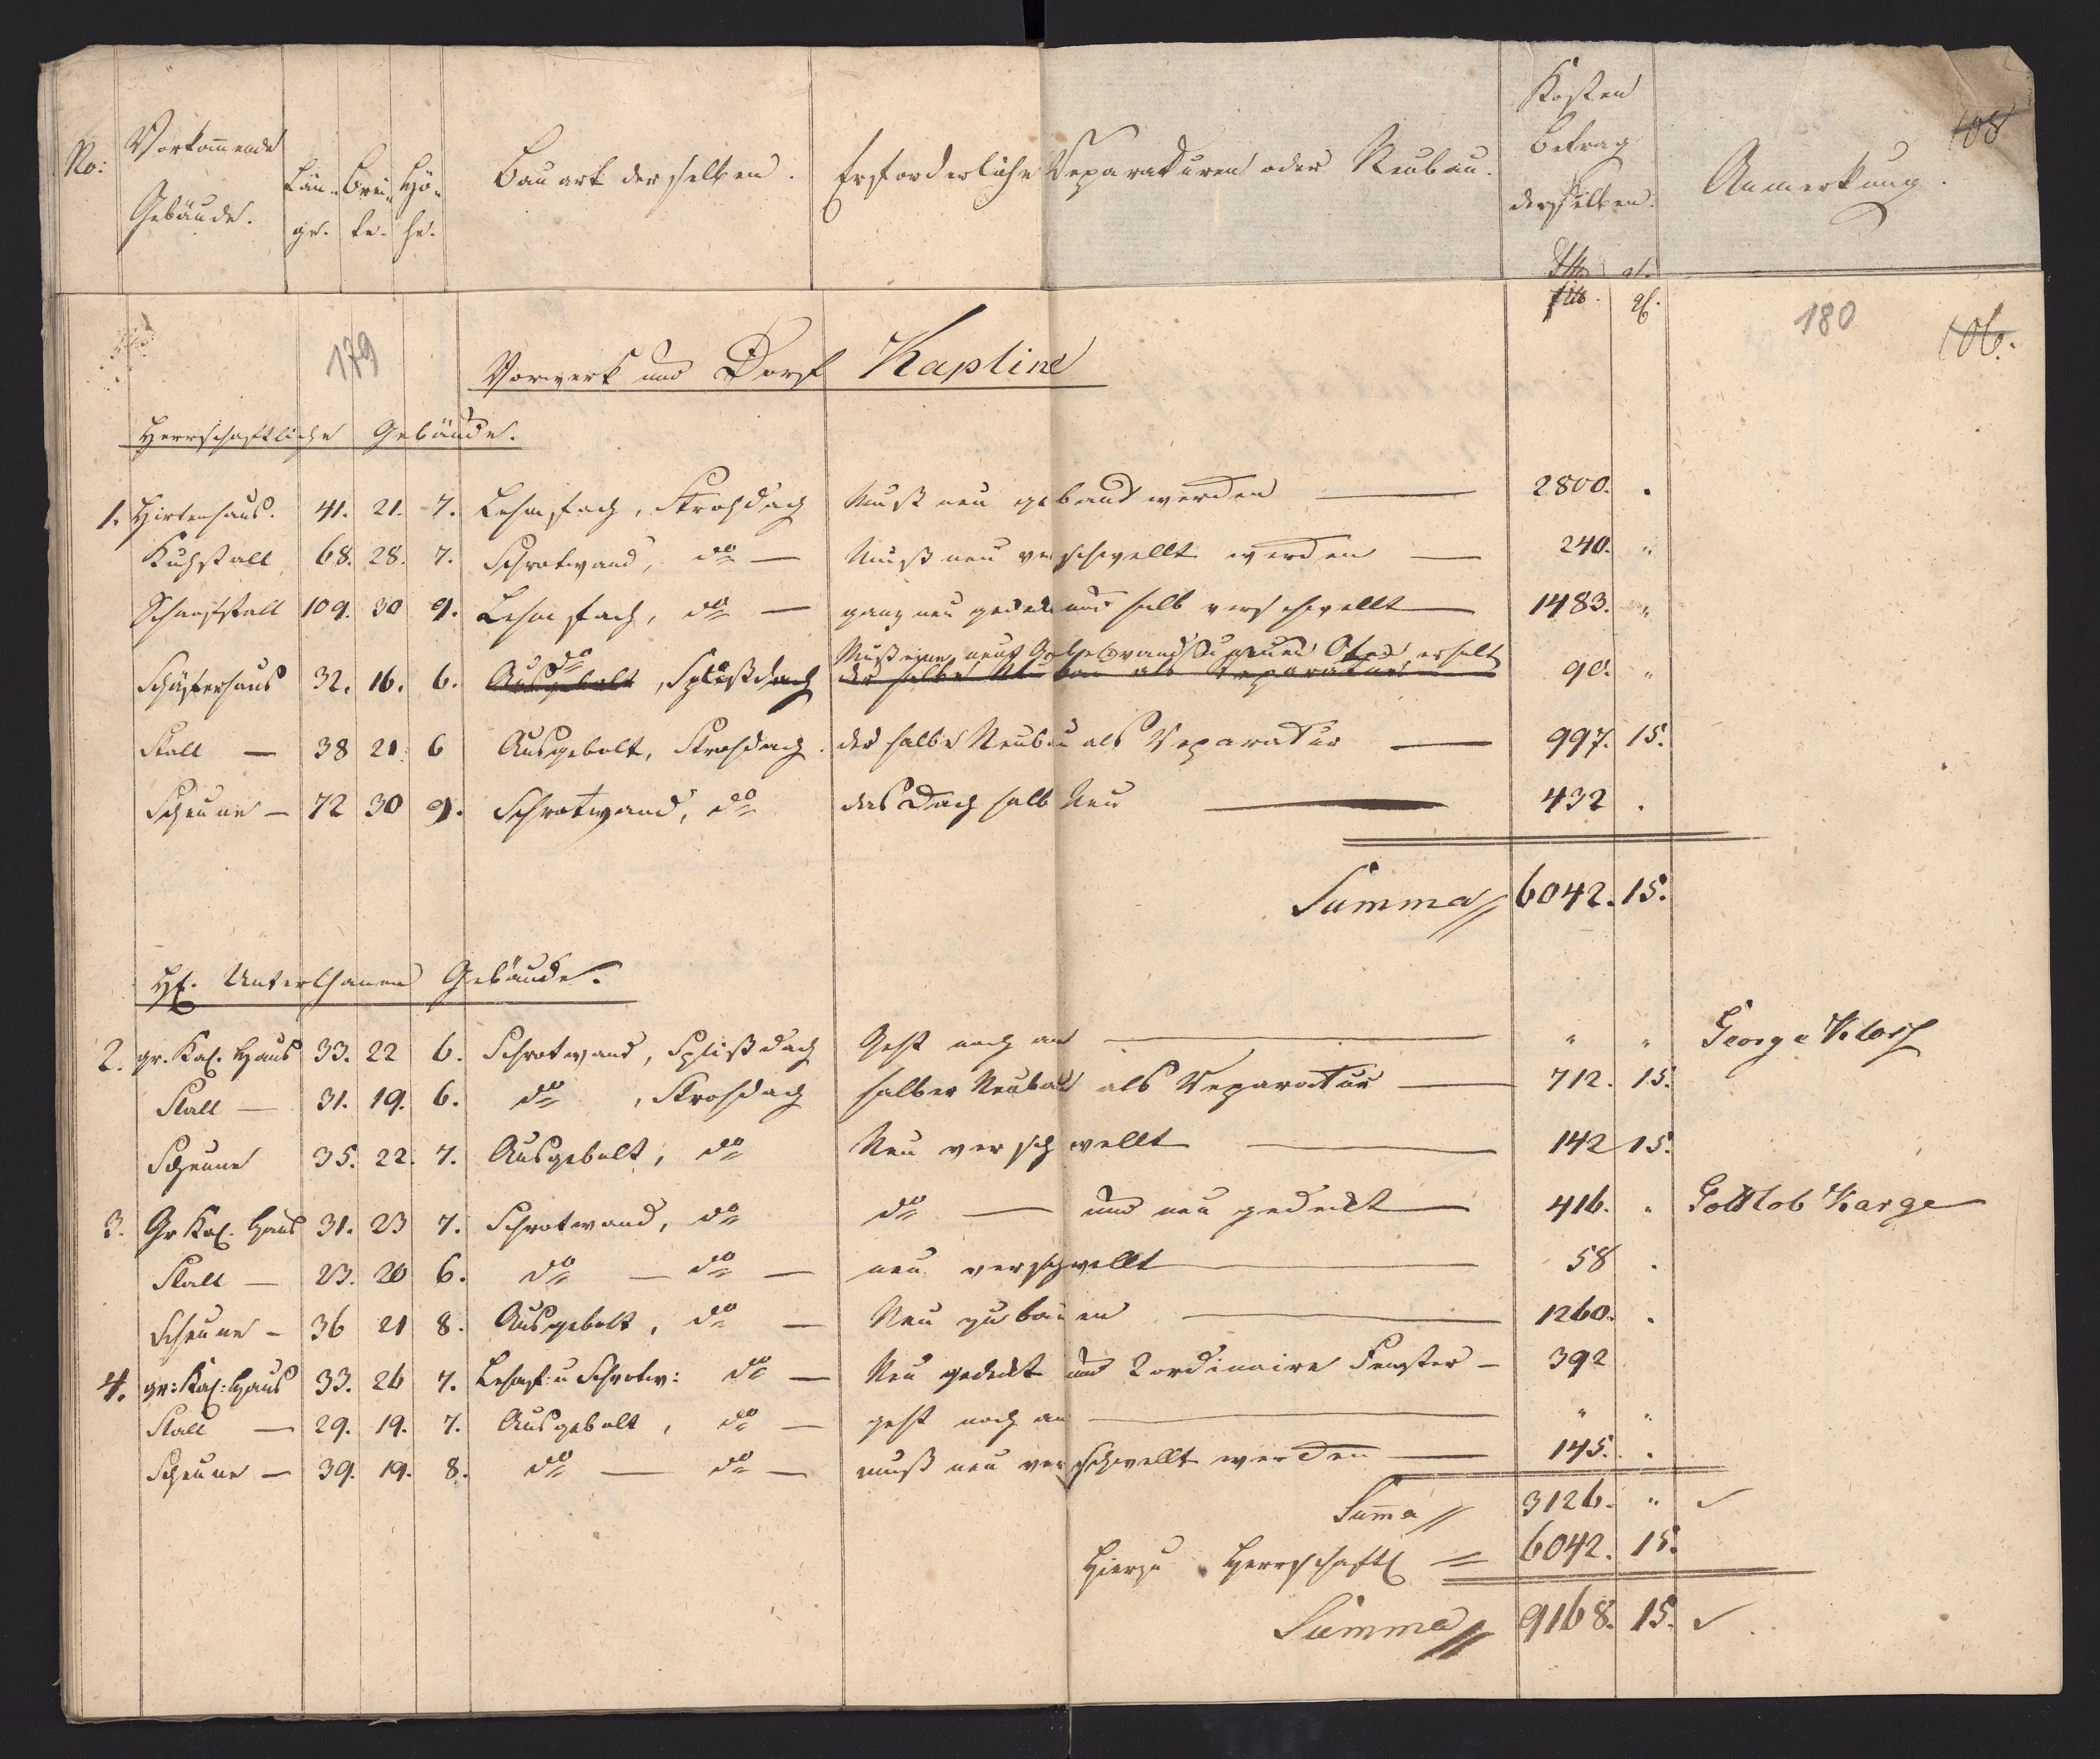 No:
Vorkom̅ende
Gebäude.
Län-
ge.
Brei-
te.
Hö-
he.
Bauart derselben.
Erforderliche Reparaturen oder Neubau.
Kosten
Betrag
derselben.
Anmerkung.
108
179
180
106.
Vorwerk und Dorf Kapline
Herrschaftliche Gebäude.
1. Hirtenhaus. 41. 21. 7. Lehmfach, Strohdach Muß neu gebaut werden — 2800. .
Kuhstall 68. 28. 7. Schrotwand, do — Muß neu verschwellt werden — 240. "
Schaafstall 109. 30 9. Lehmfach, do — ganz neu gedeckt und halb verschwellt — 1483. "
do Muß eine neue Giebelwand u. neuen Ofen erhalt
Schäferhaus 32. 16. 6. Ausgebolt, Splißdach der halbe Neubau als Reparatur — 90. "
Stall — 38 21. 6 Ausgebolt, Strohdach. der halbe Neubau als Reparatur — 997. 15.
Scheune — 72 30 9. Schrotwand, do das Dach halb Neu — 432 .
Summa 6042. 15.
Unterthanen Gebäude.
2. gr. Kas. Haus 33. 22 6. Schrotwand, Splißdach Geht noch an — " " George Klose
Stall — 31. 19. 6. do , Strohdach halber Neubau als Reparatur — 712. 15.
Scheune 35. 22. 7. Ausgebolt, do Neu verschwellt — 142 15.
3. Gr Kas. Haus 31. 23 7. Schrotwand, do do — und neu gedeckt — 416. . Gottlob Karge
Stall — 23. 20 6. do — do — neu verschwellt — 58 .
Scheune — 36 21 8. Ausgebolt, do — Neu zu bauen — 1260. .
4. gr: Kas: Haus 33. 26 7. Lehmf: u Schrotw: do — Neu gedeckt und 2 ordinaire Fenster — 392
Stall — 29. 19. 7. Ausgebolt, do — geht noch an — " "
Scheune — 39. 19. 8. do — do — muß neu verschwellt werden — 145. .
Sum̅a 3126. "
Hierzu Herrschaftl 6042. 15.
Summa 9168. 15.